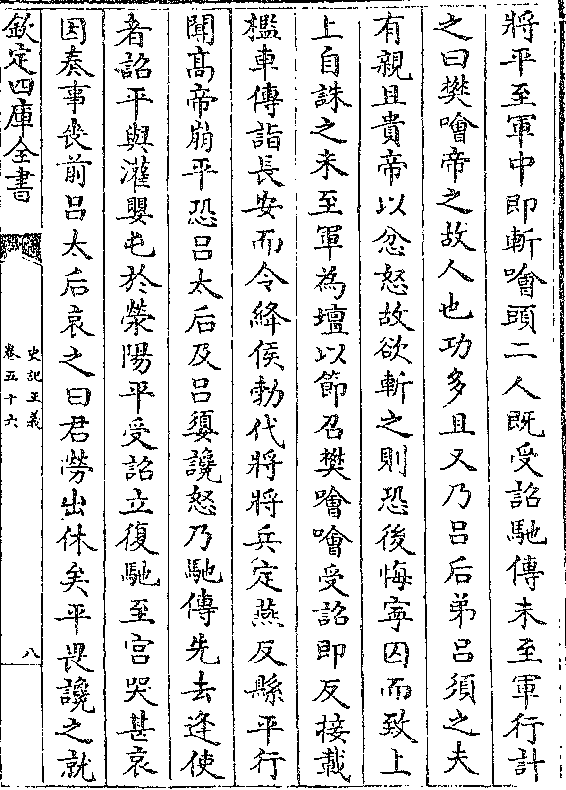 將平至軍中即斬噲頭二人既受詔馳傳未至軍行計
之曰樊噲帝之故人也功多且又乃呂后弟呂須之夫
有親且貴帝以忿怒故欲斬之則恐後悔寕囚而致上
上自誅之未至軍為壇以節召樊噲噲受詔即反接載
檻車傳詣長安而令絳侯勃代將將兵定燕反縣平行
聞髙帝崩平恐呂太后及呂嬃讒怒乃馳傳先去逢使
者詔平與灌嬰屯於滎陽平受詔立復馳至宮哭甚哀
因奏事喪前呂太后哀之曰君勞出休矣平畏讒之就
欽定四庫全書
史記正義
卷五十六
八